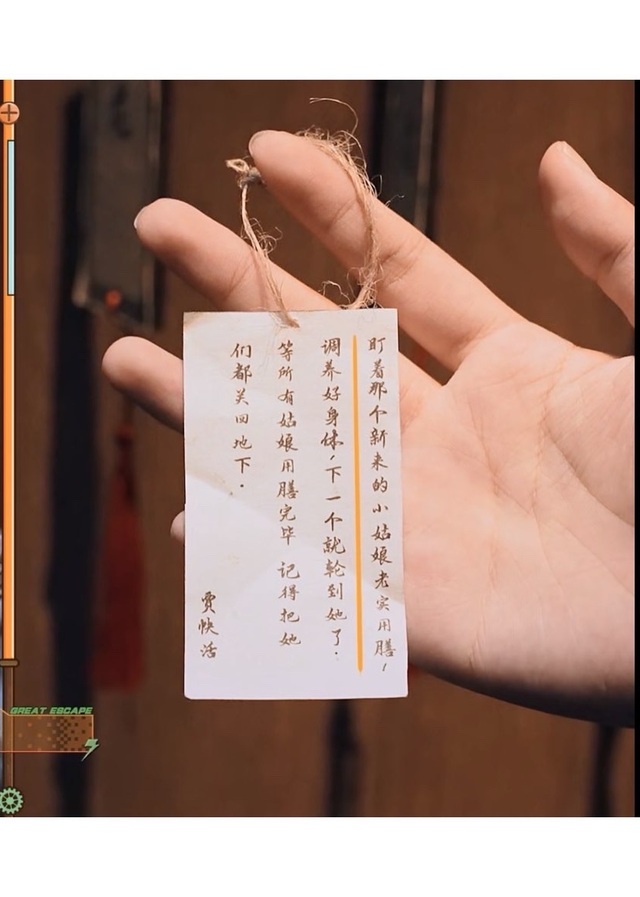 盯着那个新来的小姑娘老实用膳，
调养好身体，下一个就轮到她了.
等所有姑娘用膳完毕 记得把她
们都关回地下.
贾快活
GREAT ESCAPE